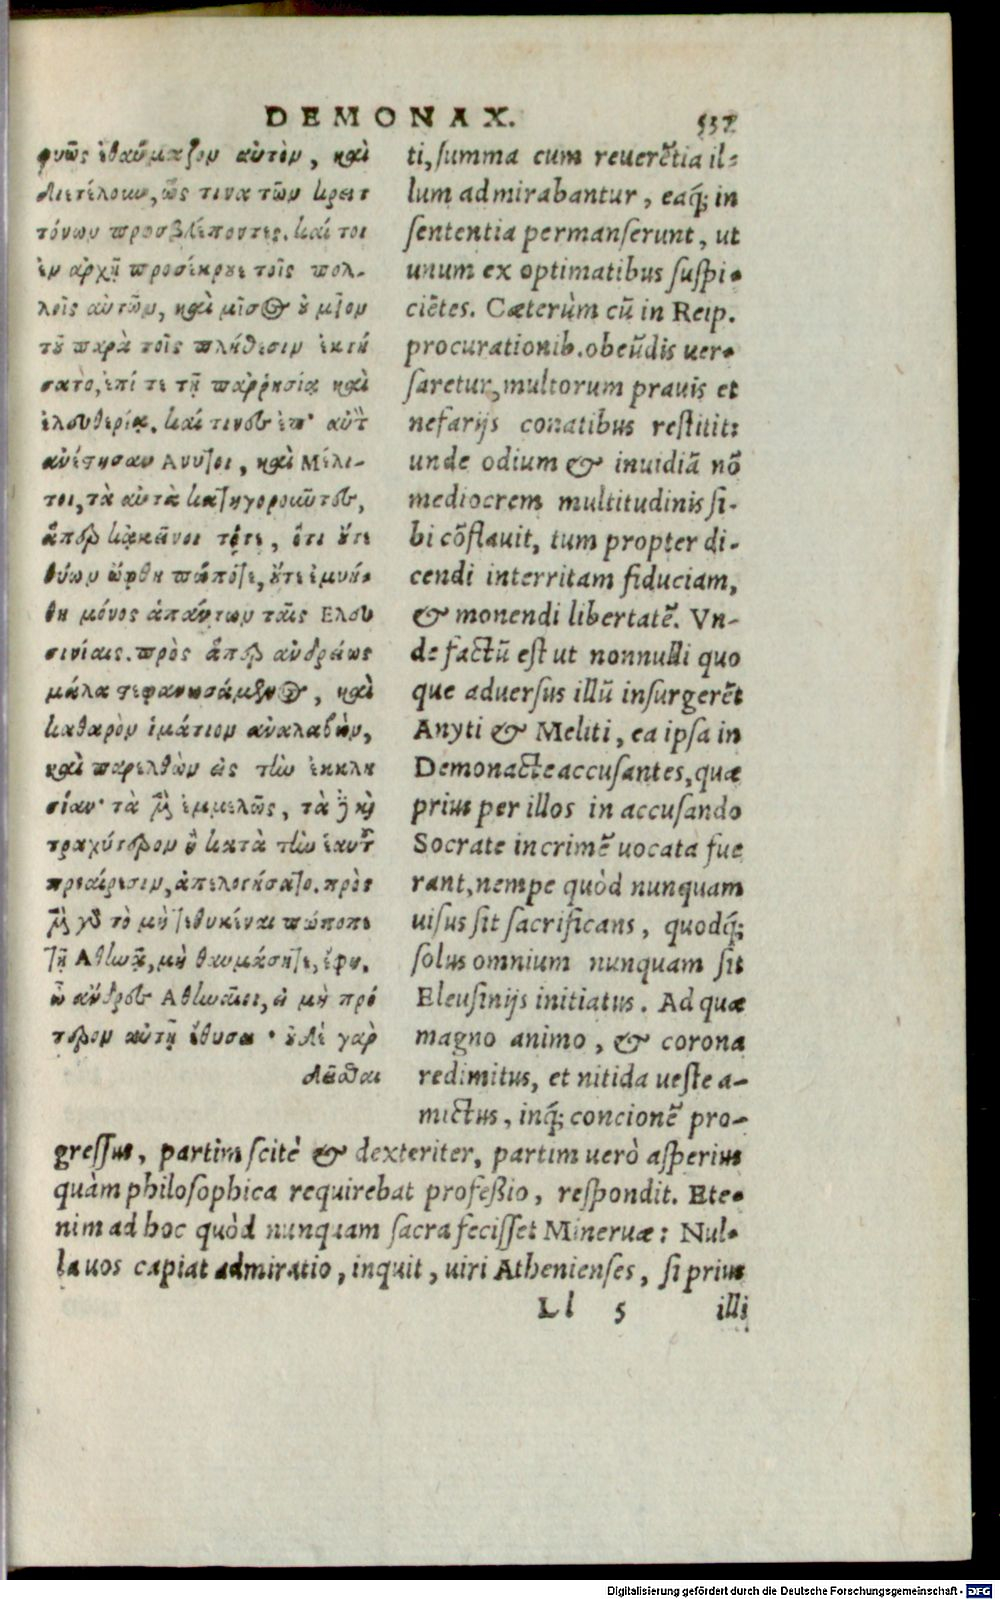 DEMONAX. 537
φυῶς ἐθαύμαζον αὐτὸν, καὶ
διετέλουν, ὥς τινα τῶν κρειτ
τόνων προσβλέποντες. καί τοι
ἐν ἀρχῇ προσέκρουε τοῖς πολ-
λοῖς αὐτῶν, καὶ μῖσος οὐ μεῖον
τοῦ παρὰ τοῖς πλήθεσιν ἐκτή
σατο, ἐπί τε τῇ παῤῥησίᾳ καὶ
ἐλευθερίᾳ. καί τινες ἐπ' αὐτὸν
ἀνέστησαν Ανυτοι, καὶ Μέλι-
τοι, τὰ αὐτὰ κατηγοροῦντες,
ἅπερ κἀκεῖνοι τότε, ὅτι οὔτε
θύων ὤφθη πώποτε, οὔτε ἐμυή-
θη μόνος ἁπάντων ταῖς Ελευ
σινίαις. πρὸς ἅπερ ἀνδρείως
μάλα στεφανωσάμενος, καὶ
καθαρὸν ἱμάτιον ἀναλαβὼν,
καὶ παρελθὼν εἰς τὴν ἐκκλη
σίαν· τὰ μὲν ἐμμελῶς, τὰ δὲ καὶ
τραχύτερον ἢ κατὰ τὴν ἑαυτοῦ
προαίρεσιν, ἀπελογήσατο. πρὸς
μὲν γὰρ τὸ μὴ τεθυκέναι πώποτε
τῇ Αθηνᾷ, μὴ θαυμάσητε, ἔφη,
ὦ ἄνδρες Αθηναῖοι, εἰ μὴ πρό
τερον αὐτῇ ἔθυσα · οὐδὲ γὰρ
δεῖσθαι
ti, summa cum reuerẽtia il-
lum admirabantur, eaq́; in
sententia permanserunt, ut
unum ex optimatibus suspi-
ciẽtes. Cæterùm cũ in Reip.
procurationib. obeũdis uer-
saretur, multorum prauis et
nefarijs conatibus restitit:
unde odium & inuidiã nõ
mediocrem multitudinis si-
bi cõflauit, tum propter di-
cendi interritam fiduciam,
& monendi libertatẽ. Vn-
de factũ est ut nonnulli quo
que aduersus illũ insurgerẽt
Anyti & Meliti, ea ipsa in
Demonacte accusantes, quæ
prius per illos in accusando
Socrate in crimẽ uocata fue
rant, nempe quòd nunquam
uisus sit sacrificans, quodq́;
solus omnium nunquam sit
Eleusinijs initiatus. Ad quæ
magno animo, & corona
redimitus, et nitida ueste a-
mictus, inq́; concionẽ pro-
gressus, partim scitè & dexteriter, partim uerò asperius
quàm philosophica requirebat professio, respondit. Ete-
nim ad hoc quòd nunquam sacra fecisset Mineruæ: Nul-
la uos capiat admiratio, inquit, uiri Athenienses, si prius
Ll 5 illi
Digitalisierung gefördert durch die Deutsche Forschungsgemeinschaft - DFG